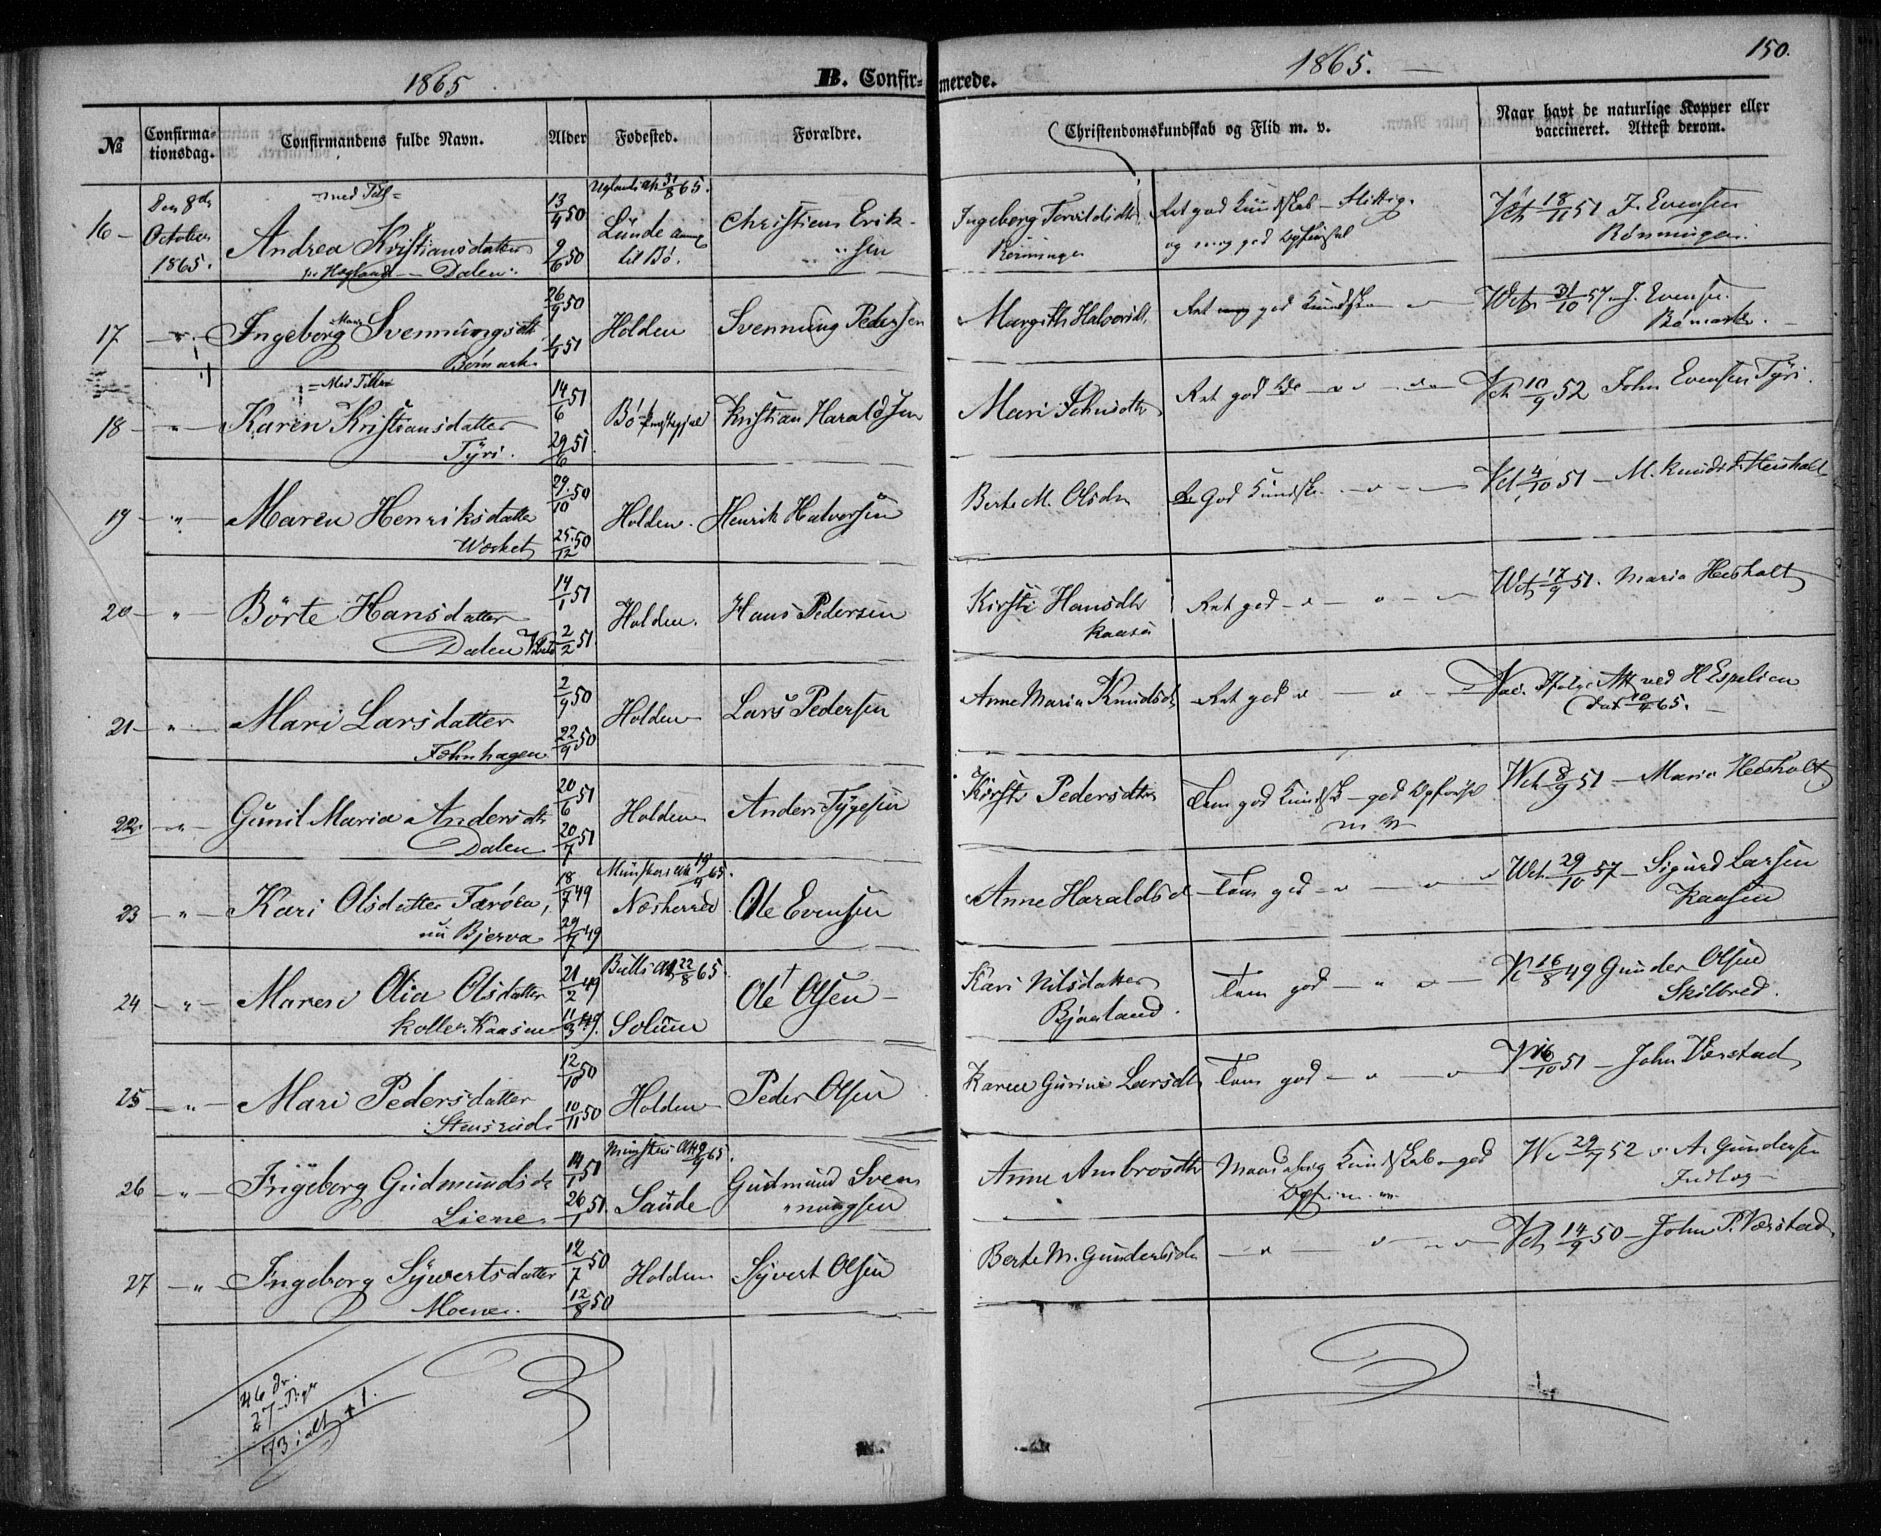 1865
B. Confirmerede.
1865.
150.
№
Confirmationsdag.
Confirmandens fulde Navn.
Alder
Fødested.
Forældre.
Christendomskundskab og Flid m. v.
Naar havt de naturlige Kopper eller vaccineret. Attest derom.
16 Den 8de October 1865. Andrea Kristiansdatter Dalen 13/4 50 9/6 50 31/8 65. Lunde til Bø. Christian Eriksen Ingeborg Rønningen Ret god Kundskab – Flittig. og meg god Opførsel Vct 18/11 51 J. Evensen Rønningen
17 " Ingeborg Svennungsdtr Bømark 26/9 50 1/1 51 Holden Svennung Pedersen Margith Halvorsdt. Ret god Kundsk Vct 31/10 57 J. Evensen Bømark.
18 " Karen Kristiansdatter Tyri. 14/6 51 29/6 51. Bø Kristian Haraldsen Mari Johnsdtr Ret god Vct 10/9 52 John Evensen Tyri.
19 " Maren Henriksdatter Værket 29/10 50 25/12 50 Holden. Henrik Halvorsen Berte M. Olsdr God Kundsk. Vct 4/10 51 – M. Knudsd. Heisholt
20 " Börte Hansdatter Dalen 14/1 51 2/2 51 Holden. Hans Pedersen Kirsti Hansdtr Kaasa Ret god Vct 17/9 51. Maria Heisholt
21 " Mari Larsdatter 2/9 50 22/9 50 Holden Lars Pedersen Anne Maria Knudsd Ret god Vac. Att ved H Espelien Dat 10/4 65.
22. " Gunil Maria Andersdtr Dalen 20/6 51 20/7 51 Holden Anders Tygesen Kirsti Pedersdtr Tem god Kundsk – god Opførsel Vct 8/9 51 – Maria Heisholt
23 " Kari Olsdatter Farøen, nu Bjerva 18/7 49 29/7 49 19/9 65. Næsherred Ole Evensen Anne Haraldsd Tem god Vct 29/10 57 – Sigurd Larsen Kaasen
24 " Maren Olia Olsdatter Kaasen 21/2 49 11/3 49. 22/8 65. Solum Ole † Olsen Kari Nilsdatter Bjaaland. Tem god V 16/8 49 Gunder Olsen Skilbred.
25 " Mari Pedersdatter Stensrud. 12/10 50 10/11 50 Holden Peder Olsen Karen Gurine Larsdtr Tem god V 16/10 51 – John Værstad
26 " Ingeborg Gudmundsdr Liene 14/1 51 26/1 51. 65. Saude Gudmund Svennungsen Anne Ambrosdtr Maadelig Kundskab – god 29/7 52 A. Gundersen
27 " Ingeborg Syvertsdatter Moene. 12/7 50 12/8 50 Holden Syvert Olsen Berte M. Gundersdr Vct 14/9 50 – John P. Værstad
46 Dr.
27 Piger
73 ialt + 1.